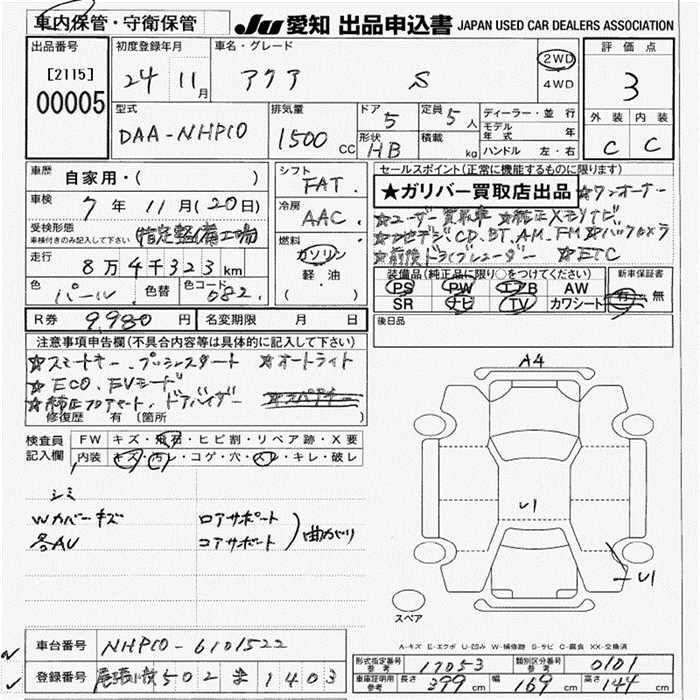 車内保管・守衛保管
JU 愛知 出品申込書 JAPAN USED CAR DEALERS ASSOCIATION
出品番号
[2115]
00005
初度登録年月
24 11月
車名・グレード
アクア S
2WD
4WD
評価点
3
外装 内装
C C
型式
DAA-NHP10
排気量
1500 CC
ドア 5
形状 HB
定員 5人
積載 kg
ディーラー・並行
モデル年式 年
ハンドル 左・右
車歴 自家用・( )
車検 7年 11月(20日)
受検形態
車検付きのみ記入して下さい
(指定整備工場)
走行 8万4千323km
色 パール 色替 色コード 082.
シフト
FAT.
冷房
AAC.
燃料
ガソリン
軽・油
( )
セールスポイント(正常に機能するものに限ります)
★ガリバー買取店出品 ☆ワンオーナー
☆ユーザー買取車 ☆純正メモリナビ
☆フルセグ、CD、BT、AM、FM ☆バックカメラ
☆前後ドライブレコーダー ☆ETC
装備品(純正品に限り○をつけてください)
PS PW エアB AW
SR ナビ TV カワシート
新車保証書
有・無
R券 9,980円 名変期限 月 日
後日品
注意事項申告欄(不具合内容等は具体的に記入して下さい)
☆スマートキー、プッシュスタート ☆オートライト
☆ECO、EVモード
☆純正フロアマート、ドアバイザー
修復歴 有 〔箇所
検査員記入欄
FW キズ・飛石・ヒビ割・リペア跡・X要
内装 キズ・汚レ・コゲ・穴・スレ・キレ・破レ
シミ
Wカバーキズ
各AU
ロアサポート
コアサポート
)曲がり
A4
U1
U1
スペア
A-キズ E-エクボ U-凹み W-補修跡 S-サビ C-腐食 XX-交換済
車台番号 NHP10-6101522
登録番号 尾張小牧502 1403
形式指定番号 参考 17053 類別区分番号 参考 0101
車庫証明用 参考 長さ 399cm 幅 169cm 高さ 144cm